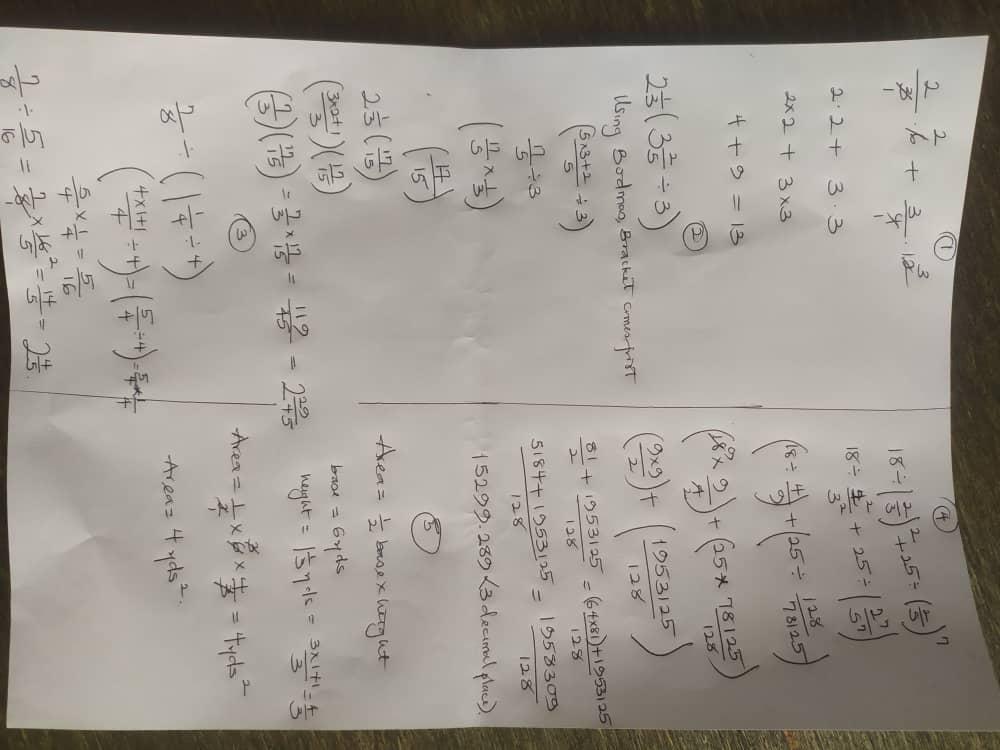 ①
2/3 · 6 + 3/4 · 12
2 · 2 + 3 · 3
2×2 + 3×3
4 + 9 = 13
②
2 1/3 (3 2/5 ÷ 3)
Using Bodmas, Bracket comes first
(5×3+2/5 ÷ 3)
17/5 ÷ 3
(17/5 × 1/3)
(17/15)
2 1/3 (17/15)
(3×2+1/3)(17/15)
(7/3)(17/15) = 7/3 × 17/15 = 119/45 = 2 29/45
③
7/8 ÷ (1 1/4 ÷ 4)
(4×1+1/4 ÷ 4) = (5/4 ÷ 4) = 5/4 × 1/4
5/4 × 1/4 = 5/16
7/8 ÷ 5/16 = 7/8 × 16/5 = 14/5 = 2 4/5.
④
18 ÷ (2/3)² + 25 ÷ (2/5)⁷
18 ÷ 2²/3² + 25 ÷ (2⁷/5⁷)
(18 ÷ 4/9) + (25 ÷ 128/78125)
(18 × 9/4) + (25 × 78125/128)
(9×9/2) + (1953125/128)
81/2 + 1953125/128 = (64×81)+1953125/128
5184+1953125/128 = 1958309/128
15299.289 <3 decimal place>.
⑤
Area = 1/2 base × height
base = 6 yds
height = 1 1/3 yds = 3×1+1/3 = 4/3
Area = 1/2 × 6 × 4/3 = 4 yds²
Area = 4 yds².